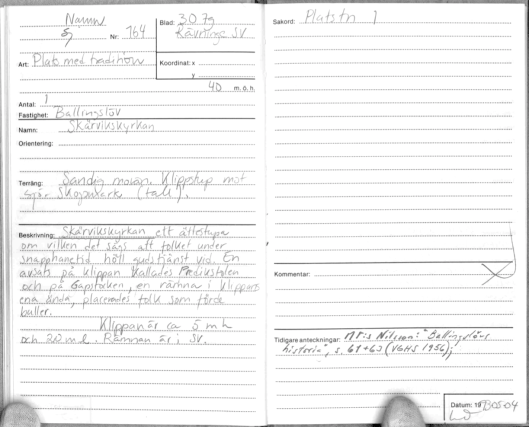 Namn
Nr: 764
Blad: 3D 7g
Rävninge SV
Art: Plats med tradition
Koordinat: x
y
40 m. ö. h.
Antal: 1
Fastighet: Ballingslöv
Namn: Skärvikskyrkan
Orientering:
Terräng: Sandig morän. Klippstup mot
sjö. Skogsmark (tall).
Beskrivning: Skärvikskyrkan ett ättestupa
om vilken det sägs att folket under
snapphanetid höll gudstjänst vid. En
avsats på klippan kallades Predikstolen
och på Gapstocken, en rämna i klippans
ena ända, placerades folk som förde
buller.
Klippan är ca 5 m h
och 20 m l. Rämnan är i SV.
Sakord: Platstn 1
Kommentar:
Tidigare anteckningar: Nils Nilsson: "Ballingslövs
historia", s. 61+63 (VGHS 1956);
Datum: 19 05-04